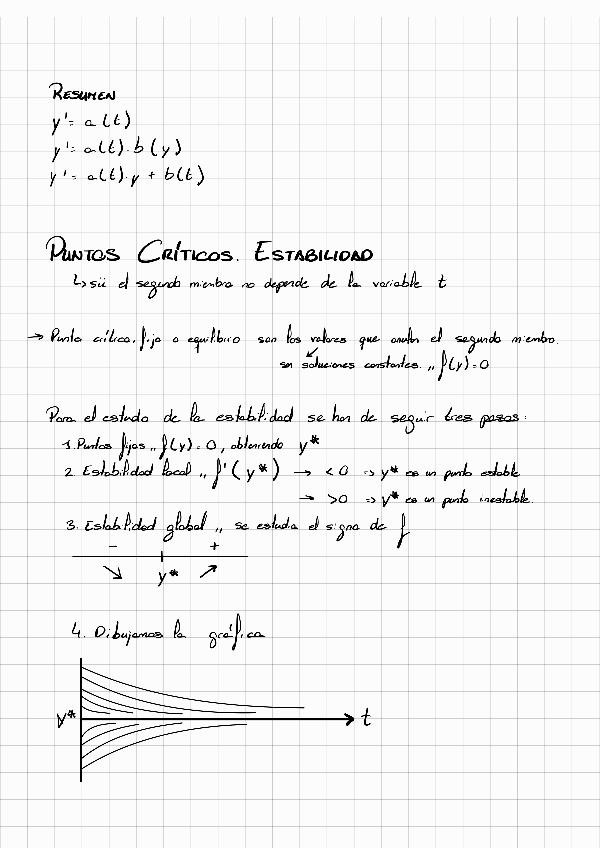 RESUMEN
y' = a(t)
y' = a(t)·b(y)
y' = a(t)·y + b(t)
PUNTOS CRÍTICOS. ESTABILIDAD
↳ sii el segundo miembro no depende de la variable t
→ Punto crítico, fijo o equilibrio son los valores que anulan el segundo miembro.
son soluciones constantes ,, f(y)=0
Para el estudio de la estabilidad se han de seguir tres pasos:
1. Puntos fijos ,, f(y)=0, obteniendo y*
2. Estabilidad local ,, f'(y*) → <0 ⇒ y* es un punto estable
→ >0 ⇒ y* es un punto inestable.
3. Estabilidad global ,, se estudia el signo de f
- +
↘ y* ↗
4. Dibujamos la gráfica
y* t